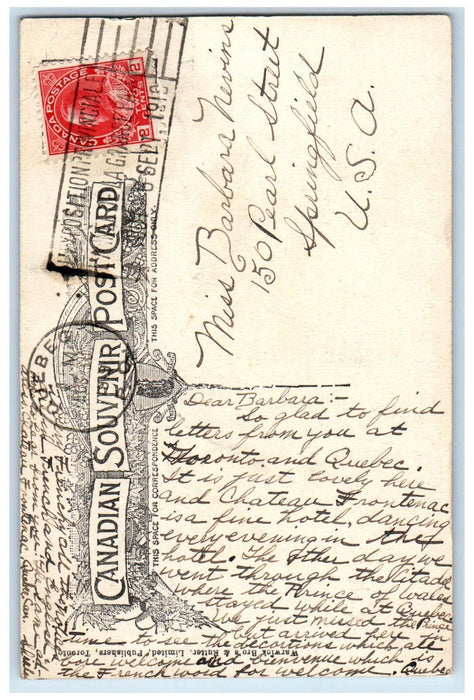 CANADA POSTAGE
2 TWO CENTS 2
EXPOSITION PROVINCIALE
6 SEPT
CANADIAN SOUVENIR POST CARD
THIS SPACE FOR CORRESPONDENCE
THIS SPACE FOR ADDRESS ONLY.
Warwick Bro's & Rutter, Limited, Publishers, Toronto
QUEBEC
Miss Barbara Nevins
150 Pearl Street
Springfield
U. S. A.
Dear Barbara:-
So glad to find
letters from you at
Toronto and Quebec.
It is just lovely here
and Chateau Frontenac
is a fine hotel, dancing
every evening in the
hotel. The other day we
went through the Citadel
where the Prince of Wales
stayed while at Quebec.
We just missed the Prince
but arrived here in
time to see the decorations which all
bore welcome and bienvenue which is
the French word for welcome. Quebec